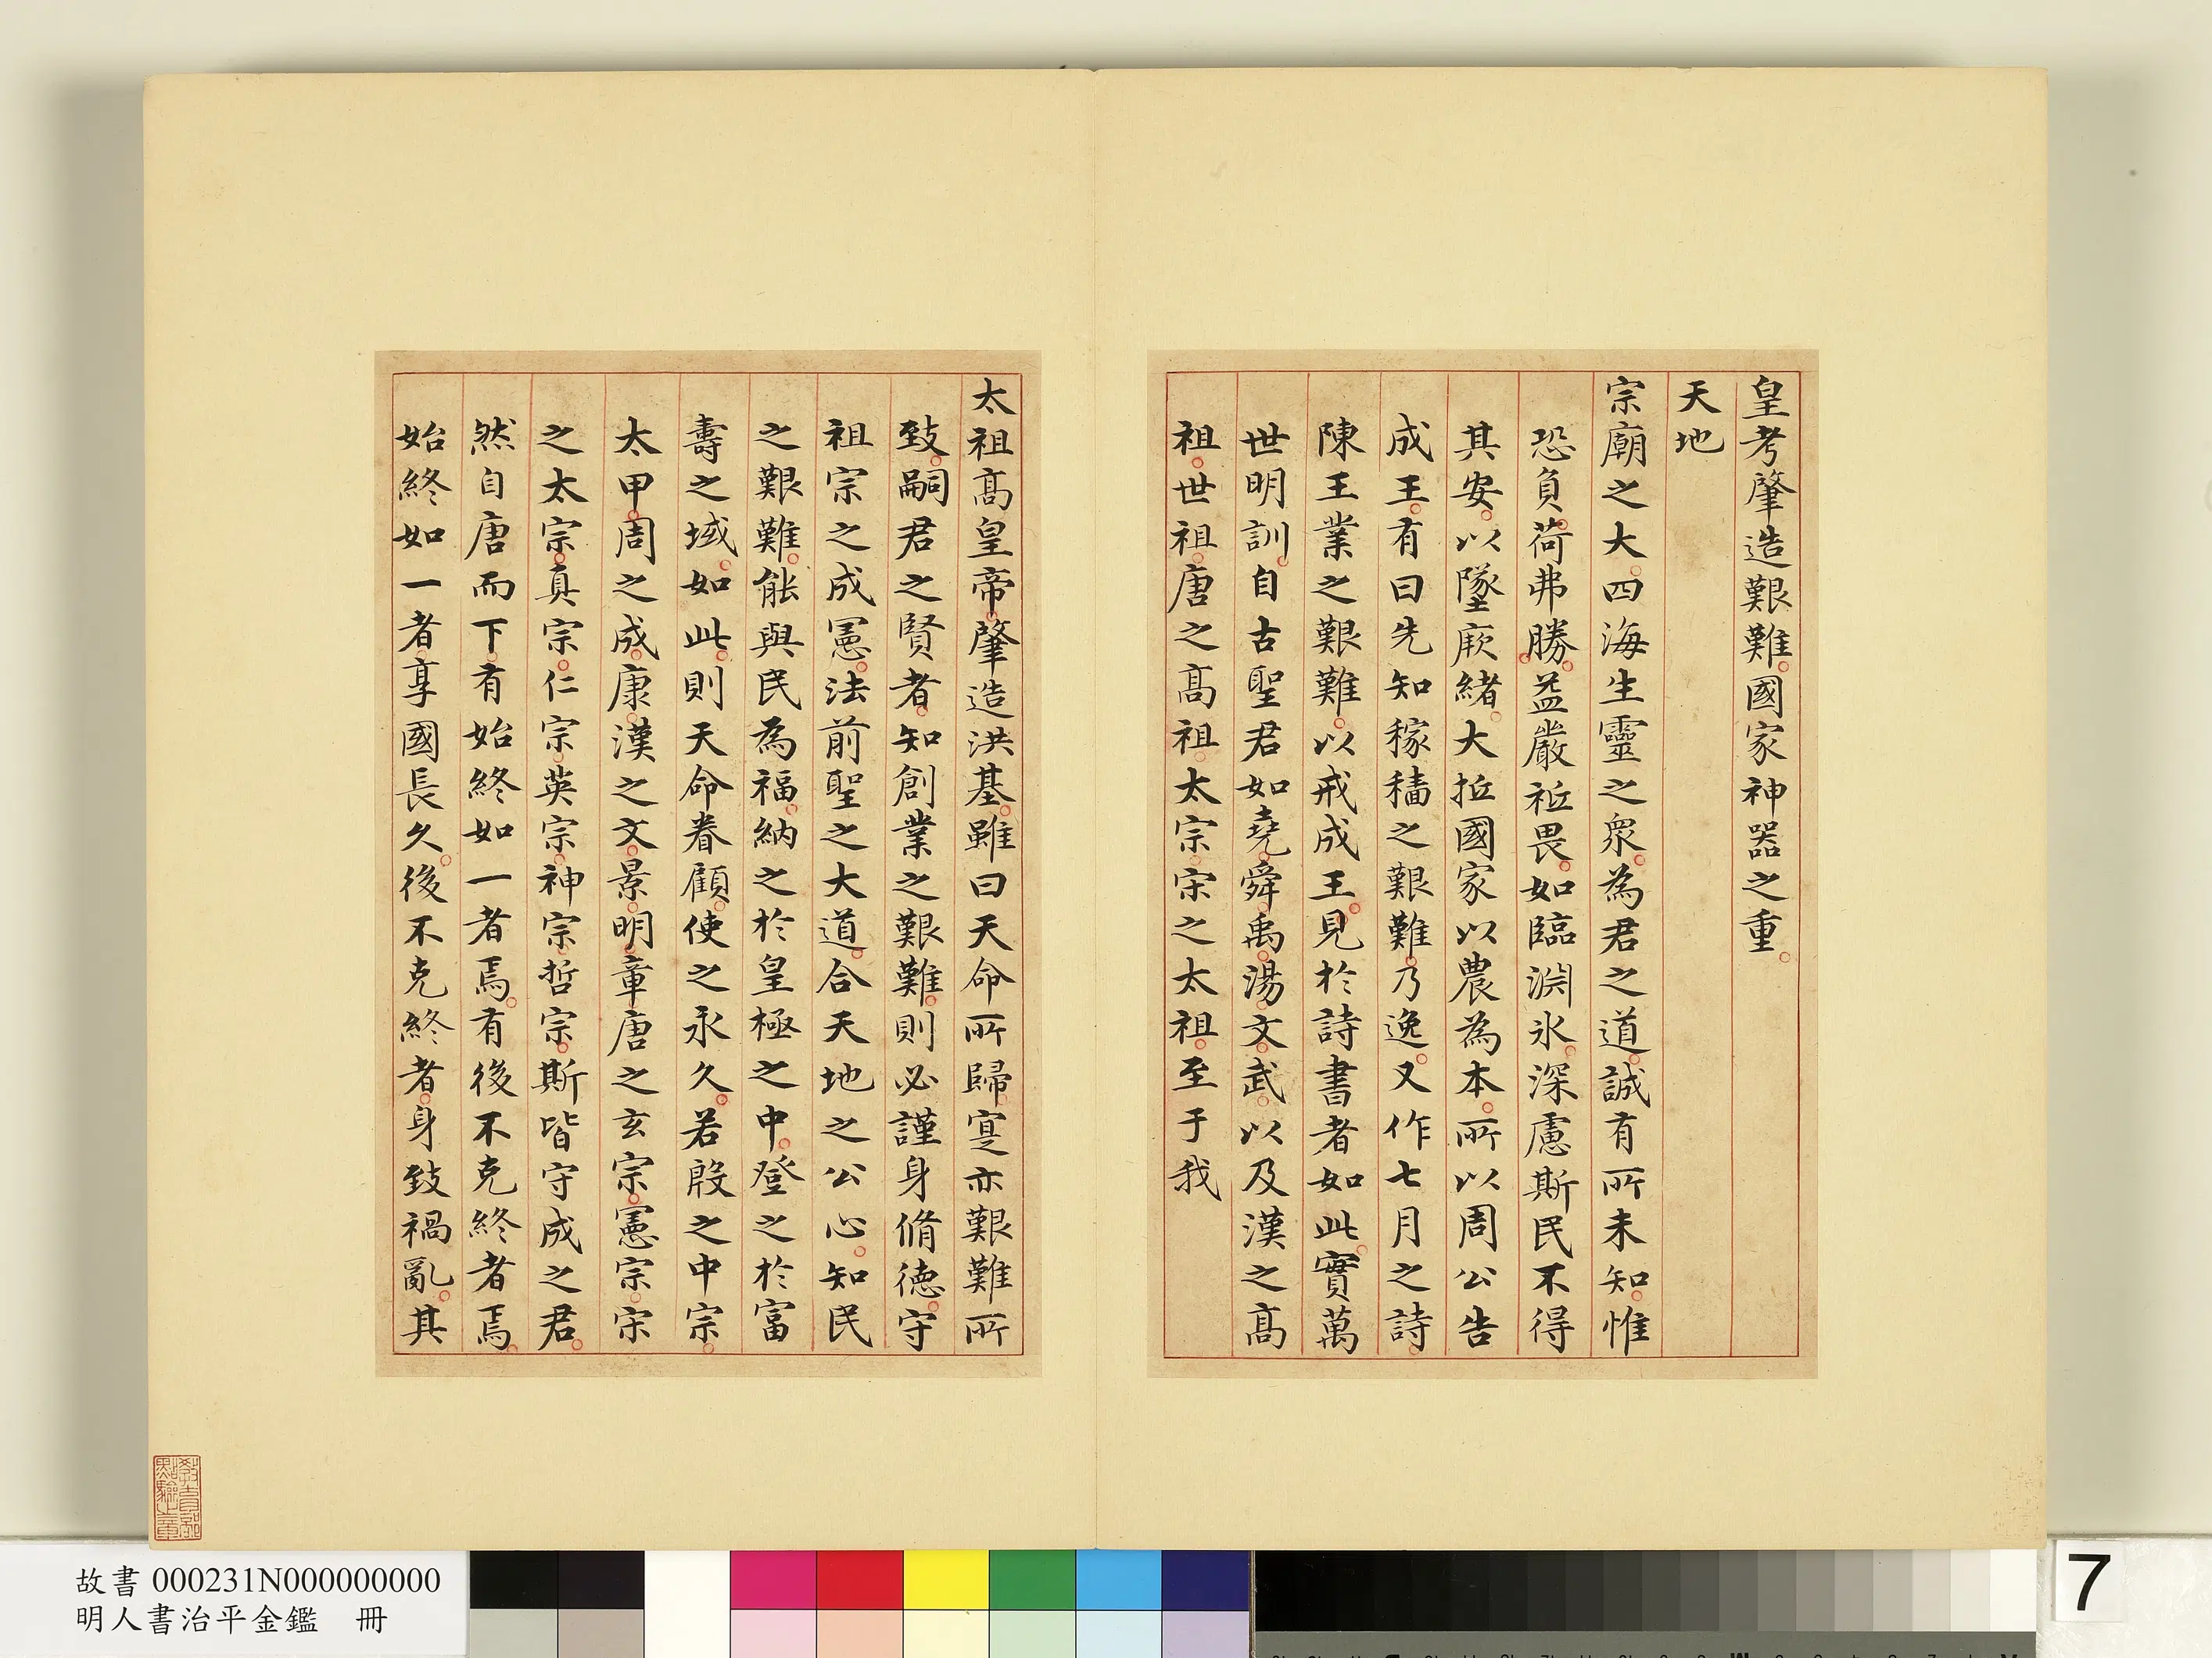 皇考肇造艱難國家神器之重
天地
宗廟之大四海生靈之衆為君之道誠有所未知惟
恐負荷弗勝益嚴祗畏如臨淵氷深慮斯民不得
其安以墜厥緒大抵國家以農為本所以周公告
成王有曰先知稼穡之艱難乃逸又作七月之詩
陳王業之艱難以戒成王見於詩書者如此實萬
世明訓自古聖君如堯舜禹湯文武以及漢之髙
祖世祖唐之髙祖太宗宋之太祖至于我
太祖髙皇帝肇造洪基雖曰天命所歸寔亦艱難所
致嗣君之賢者知創業之艱難則必謹身脩德守
祖宗之成憲法前聖之大道合天地之公心知民
之艱難能與民為福納之於皇極之中登之於富
壽之域如此則天命眷顧使之永久若殷之中宗
太甲周之成康漢之文景明章唐之玄宗憲宗宋
之太宗真宗仁宗英宗神宗哲宗斯皆守成之君
然自唐而下有始終如一者焉有後不克終者焉
始終如一者享國長久後不克終者身致禍亂其
故書 000231N000000000
明人書治平金鑑 冊
7